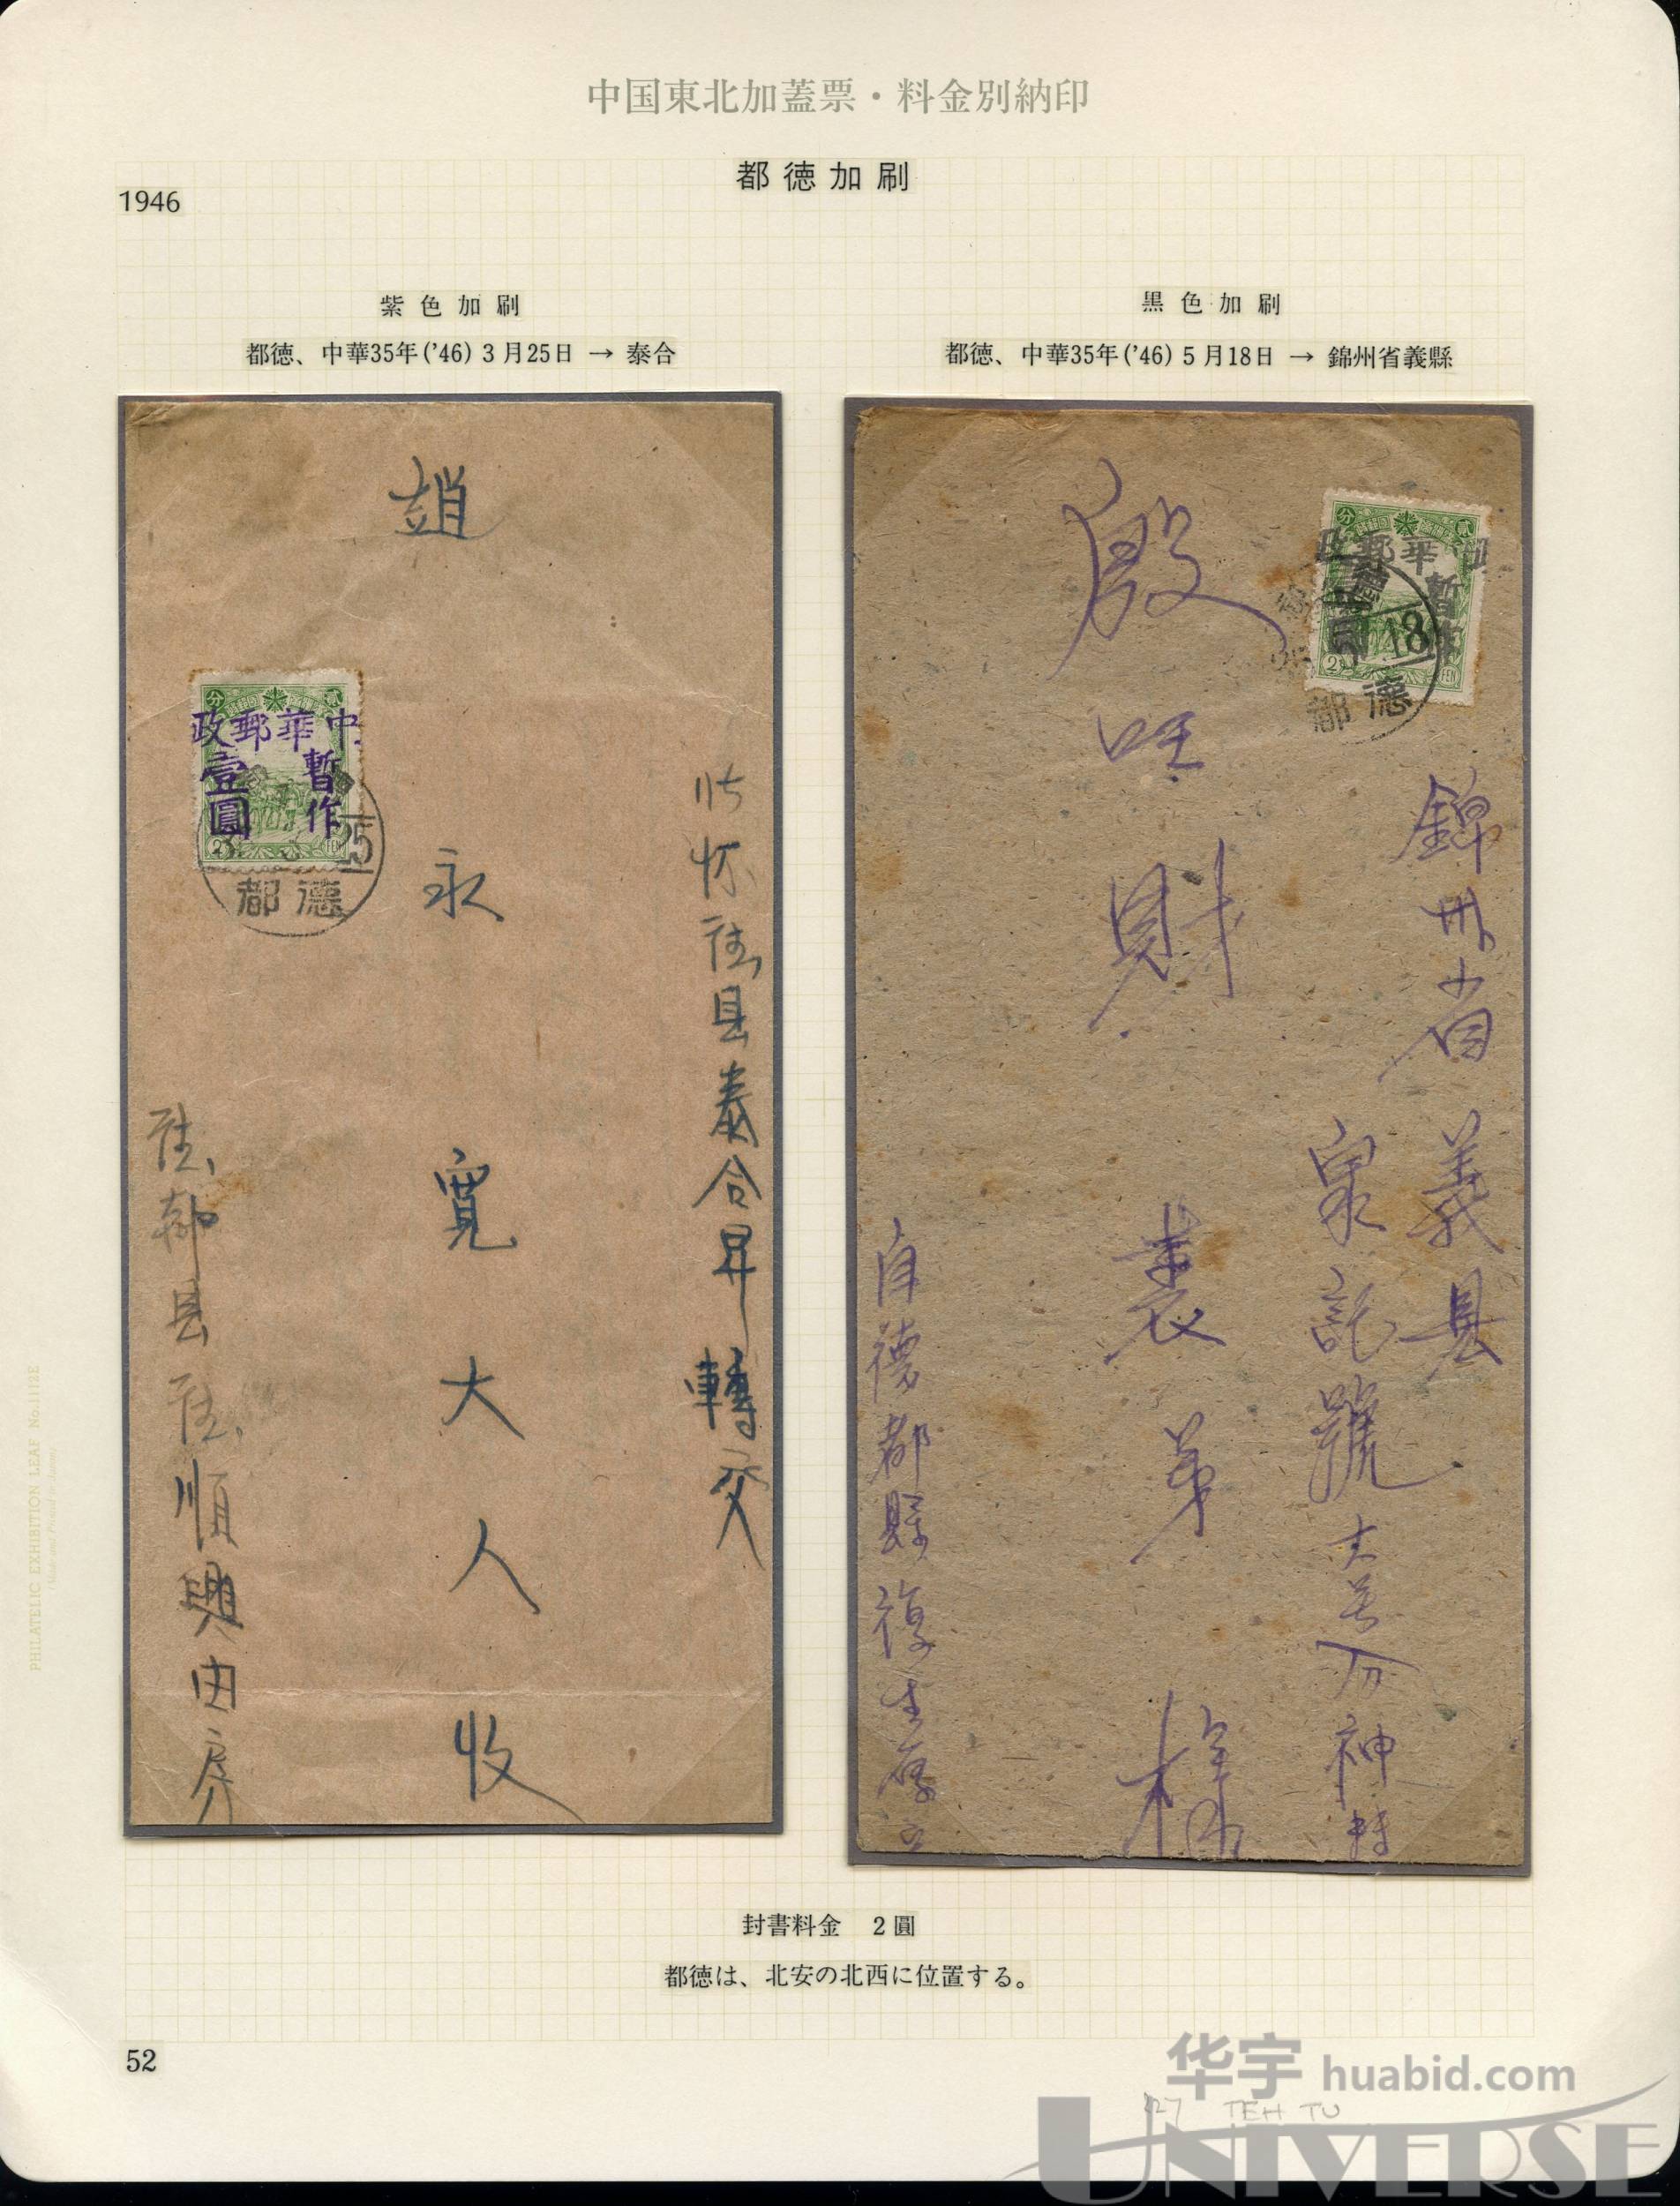 中国東北加蓋票・料金別納印
都徳加刷
1946
紫色加刷
都徳、中華35年('46) 3月25日 → 泰合
黒色加刷
都徳、中華35年('46) 5月18日 → 錦州省義縣
趙
永
寛
大
人
收
县泰合昇轉交
县
順興
政郵華中
暫作
壹圓
分
貳
2
FEN
25
都德
殷
財
弟
様
錦州省
義县
泉記號
自德都縣復生
分
貳
郵華
暫作
2
FEN
18
都德
封書料金 2圓
都徳は、北安の北西に位置する。
PHILATELIC EXHIBITION LEAF No.1112E
52
华宇 huabid.com
TEH TU
UNIVERSE